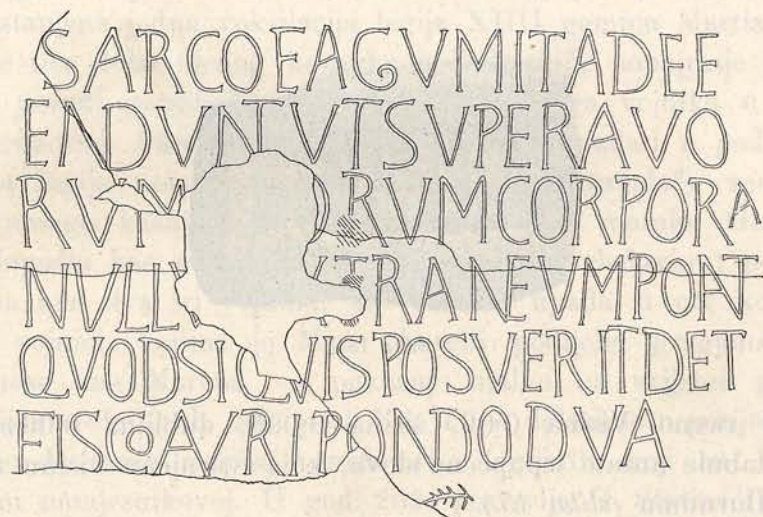 SARCOEAGVMITADEE
ENDVNTVTSVPERAVO
RVM RVMCORPORA
NVLL TRANEVMPOAT
QVODSIQVISPOSVERITDET
EISCOAVRIPONDODVA